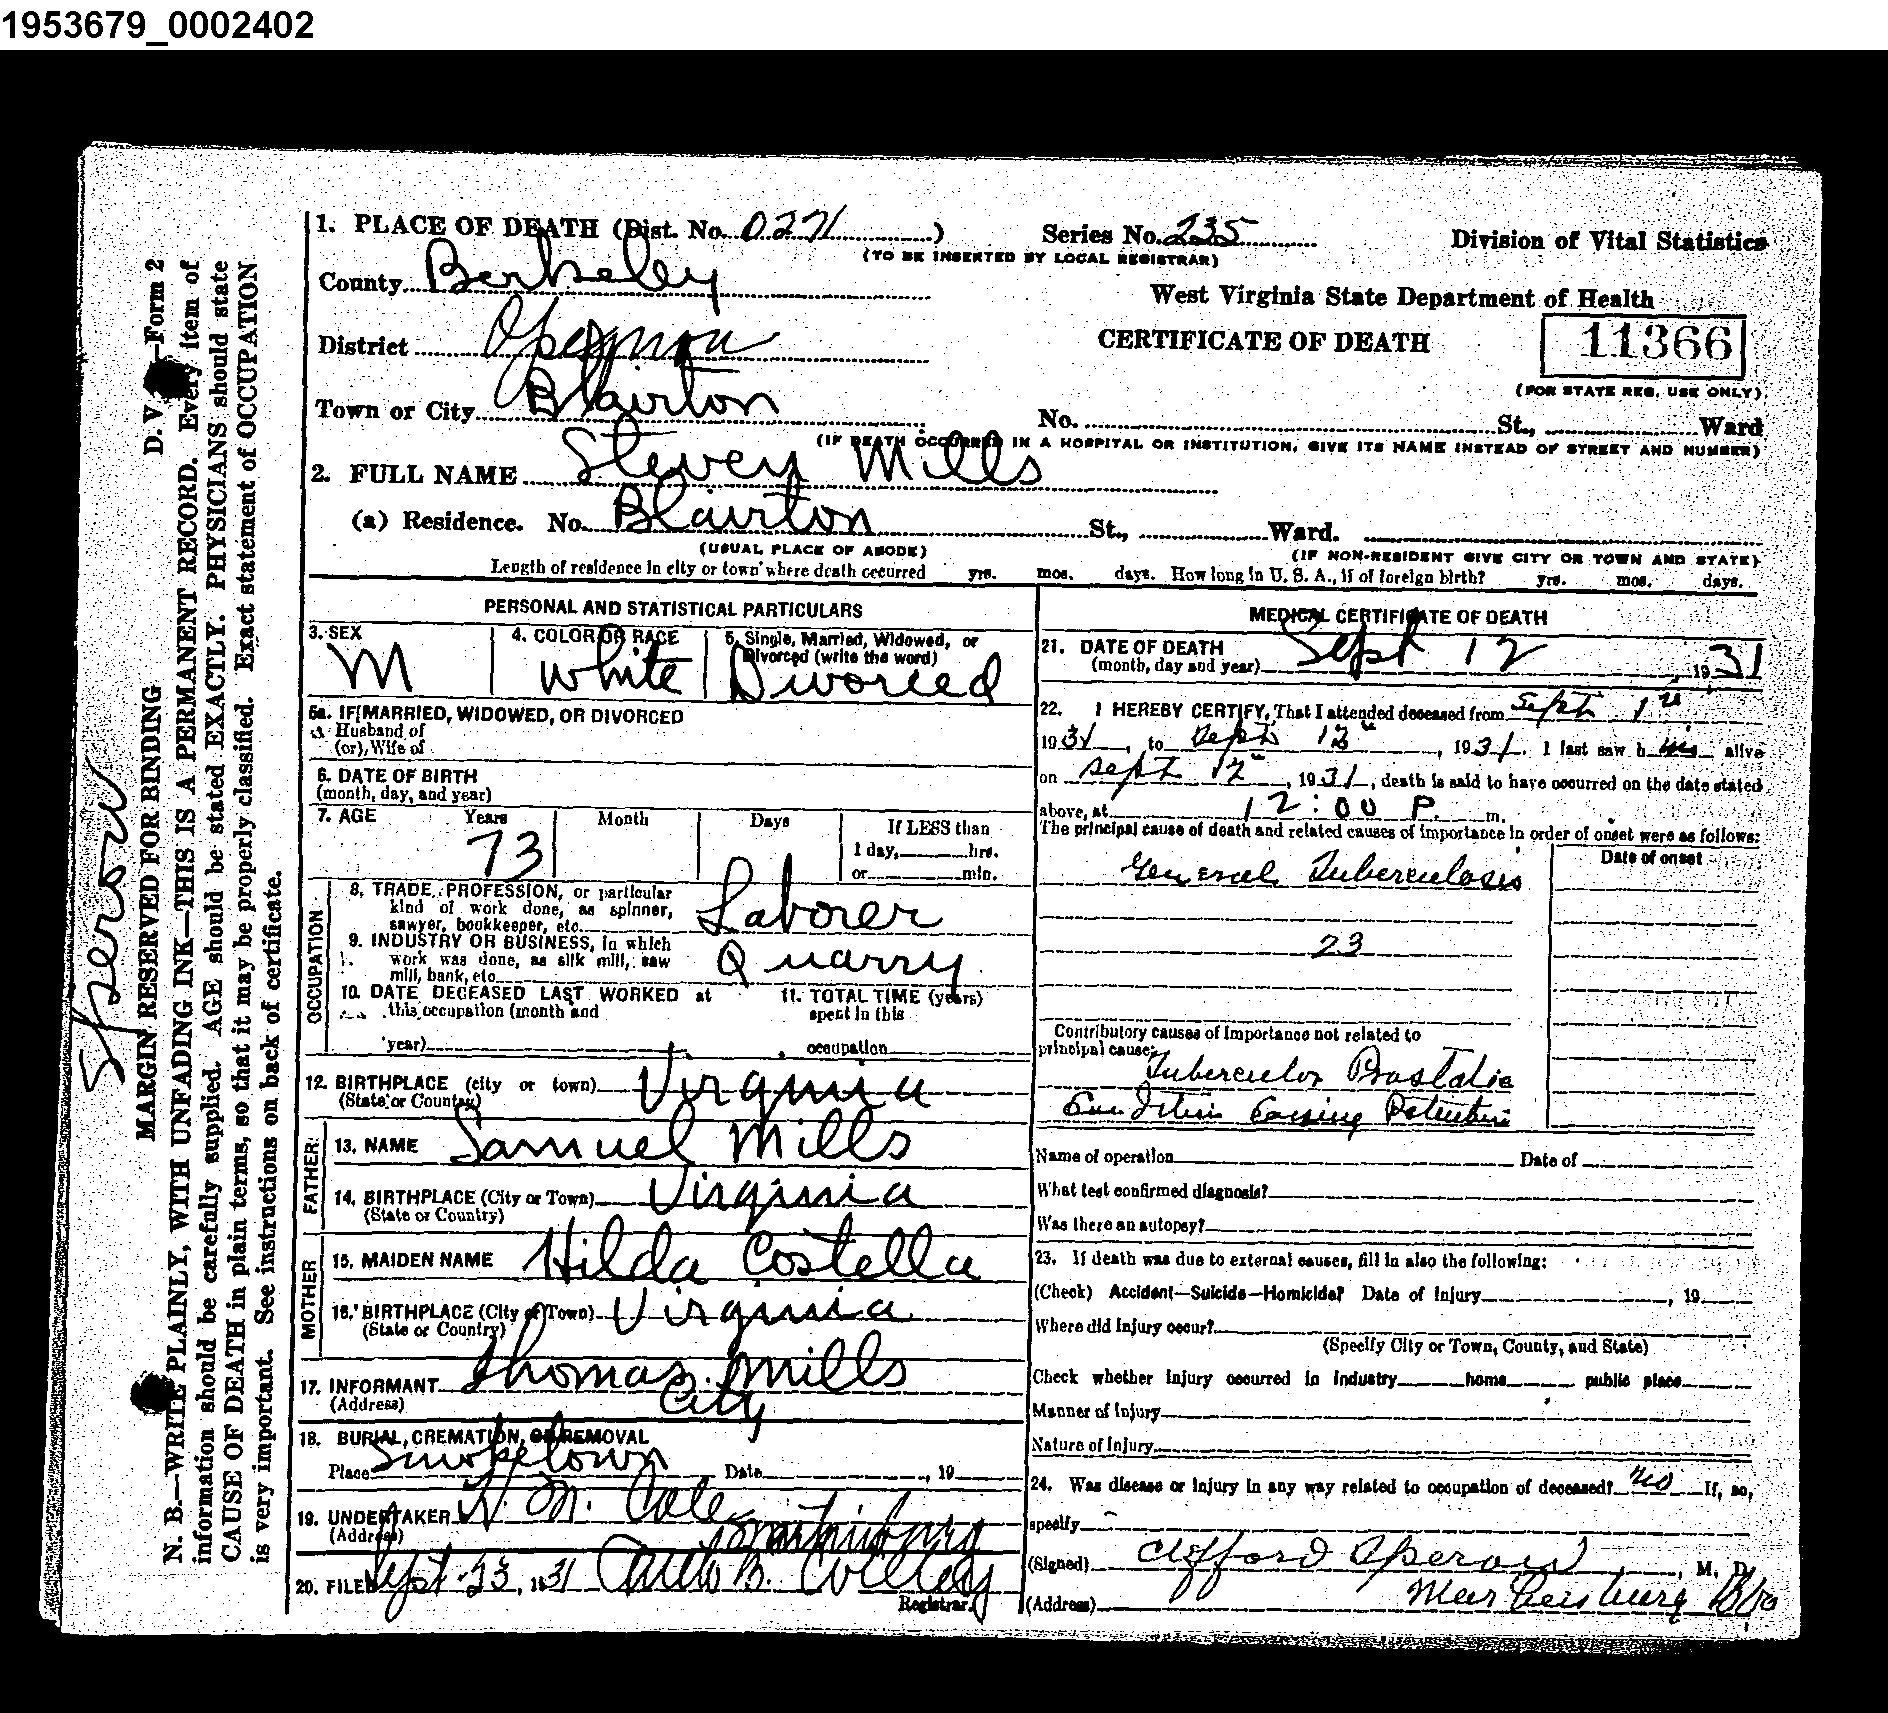 1953679_0002402
1. PLACE OF DEATH (Dist. No. 0271 ) Series No. 235 Division of Vital Statistics
(TO BE INSERTED BY LOCAL REGISTRAR)
County Berkeley
West Virginia State Department of Health
District Opequon CERTIFICATE OF DEATH 11366
(FOR STATE REG. USE ONLY)
Town or City Blairton No. St., Ward
(IF DEATH OCCURRED IN A HOSPITAL OR INSTITUTION, GIVE ITS NAME INSTEAD OF STREET AND NUMBER)
2. FULL NAME Steven Mills
(a) Residence. No. Blairton St., Ward.
(USUAL PLACE OF ABODE) (IF NON-RESIDENT GIVE CITY OR TOWN AND STATE)
Length of residence in city or town where death occurred yrs. mos. days. How long in U. S. A., if of foreign birth? yrs. mos. days.
PERSONAL AND STATISTICAL PARTICULARS
3. SEX 4. COLOR OR RACE 5. Single, Married, Widowed, or
Divorced (write the word)
M White Divorced
5a. IF MARRIED, WIDOWED, OR DIVORCED
Husband of
(or) Wife of
6. DATE OF BIRTH
(month, day, and year)
7. AGE Years Month Days If LESS than
73 1 day, hrs.
or min.
OCCUPATION
8. TRADE, PROFESSION, or particular
kind of work done, as spinner,
sawyer, bookkeeper, etc. Laborer
9. INDUSTRY OR BUSINESS, in which
work was done, as silk mill, saw
mill, bank, etc. Quarry
10. DATE DECEASED LAST WORKED at 11. TOTAL TIME (years)
this occupation (month and spent in this
year) occupation
12. BIRTHPLACE (city or town) Virginia
(State or Country)
FATHER
13. NAME Samuel Mills
14. BIRTHPLACE (City or Town) Virginia
(State or Country)
MOTHER
15. MAIDEN NAME Hilda Costella
16. BIRTHPLACE (City or Town) Virginia
(State or Country)
17. INFORMANT Thomas Mills
(Address) City
18. BURIAL, CREMATION, OR REMOVAL
Place Smoketown Date , 19
19. UNDERTAKER M. Cole
(Address)
20. FILED Sept 23, 1931
Registrar.
MEDICAL CERTIFICATE OF DEATH
21. DATE OF DEATH
(month, day and year) Sept 12 , 1931
22. I HEREBY CERTIFY, That I attended deceased from Sept 1st
1931, to Sept 12", 1931. I last saw him alive
on Sept 12", 1931, death is said to have occurred on the date stated
above, at 12:00 P. m.
The principal cause of death and related causes of importance in order of onset were as follows:
Date of onset
General Tuberculosis
23
Contributory causes of importance not related to
principal cause:
Tubercular Prostatic
Condition Causing Retention
Name of operation Date of
What test confirmed diagnosis?
Was there an autopsy?
23. If death was due to external causes, fill in also the following:
(Check) Accident—Suicide—Homicide? Date of injury , 19
Where did injury occur?
(Specify City or Town, County, and State)
Check whether injury occurred in industry home public place
Manner of injury
Nature of Injury
24. Was disease or injury in any way related to occupation of deceased? no If, so,
specify
(Signed) Clifford Sperow , M. D.
(Address) Martinsburg
Sperow
MARGIN RESERVED FOR BINDING D. V. —Form 2
N. B.—WRITE PLAINLY, WITH UNFADING INK—THIS IS A PERMANENT RECORD. Every item of
information should be carefully supplied. AGE should be stated EXACTLY. PHYSICIANS should state
CAUSE OF DEATH in plain terms, so that it may be properly classified. Exact statement of OCCUPATION
is very important. See instructions on back of certificate.